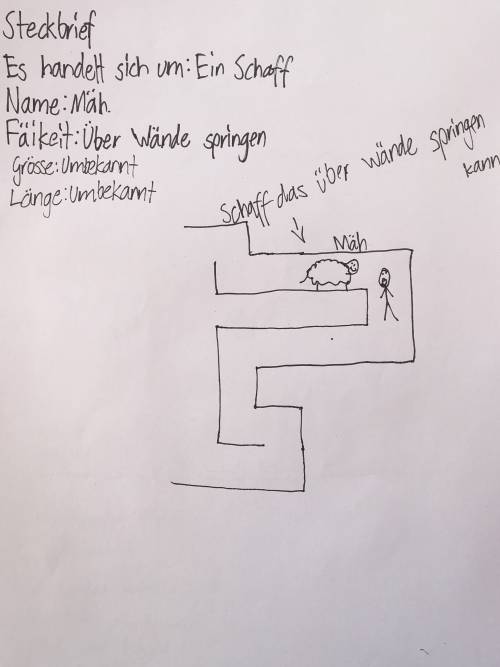 Steckbrief
Es handelt sich um: Ein Schaff
Name: Mäh.
Fäikeit: Über Wände springen
Grösse: Umbekannt
Länge: Umbekannt
Schaff das über Wände springen
kann
Mäh